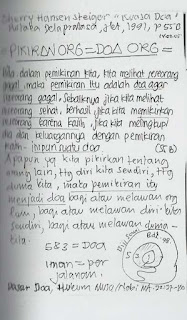 Sherry Hansen Steiger - Kuasa Doa
Putaka Delapratasa, Jkt, 1997, p 550
=PIKIRAN ORG = DOA ORG =
Kita dalam pemikiran kita, kita melihat seseorang
gagal, maka pemikiran itu adalah doa agar
seseorang gagal. Sebaliknya jika kita melihat
seseorang sehat, berhasil, jika kita memikirkan
karena kasih, jika kita melingkupi
dia dan keluarganya dengan pemikiran
itu suatu doa
Apapun yg kita pikirkan tentang
orang lain, ttg diri kita sendiri, ttg
dunia kita, maka pemikiran itu
menjadi doa bagi atau melawan org
lain, bagi atau melawan diri kita
sendiri, bagi atau melawan dunia
kita.
583 = Doa
iman = por
jalanom.
Dasar Doa, Hukum